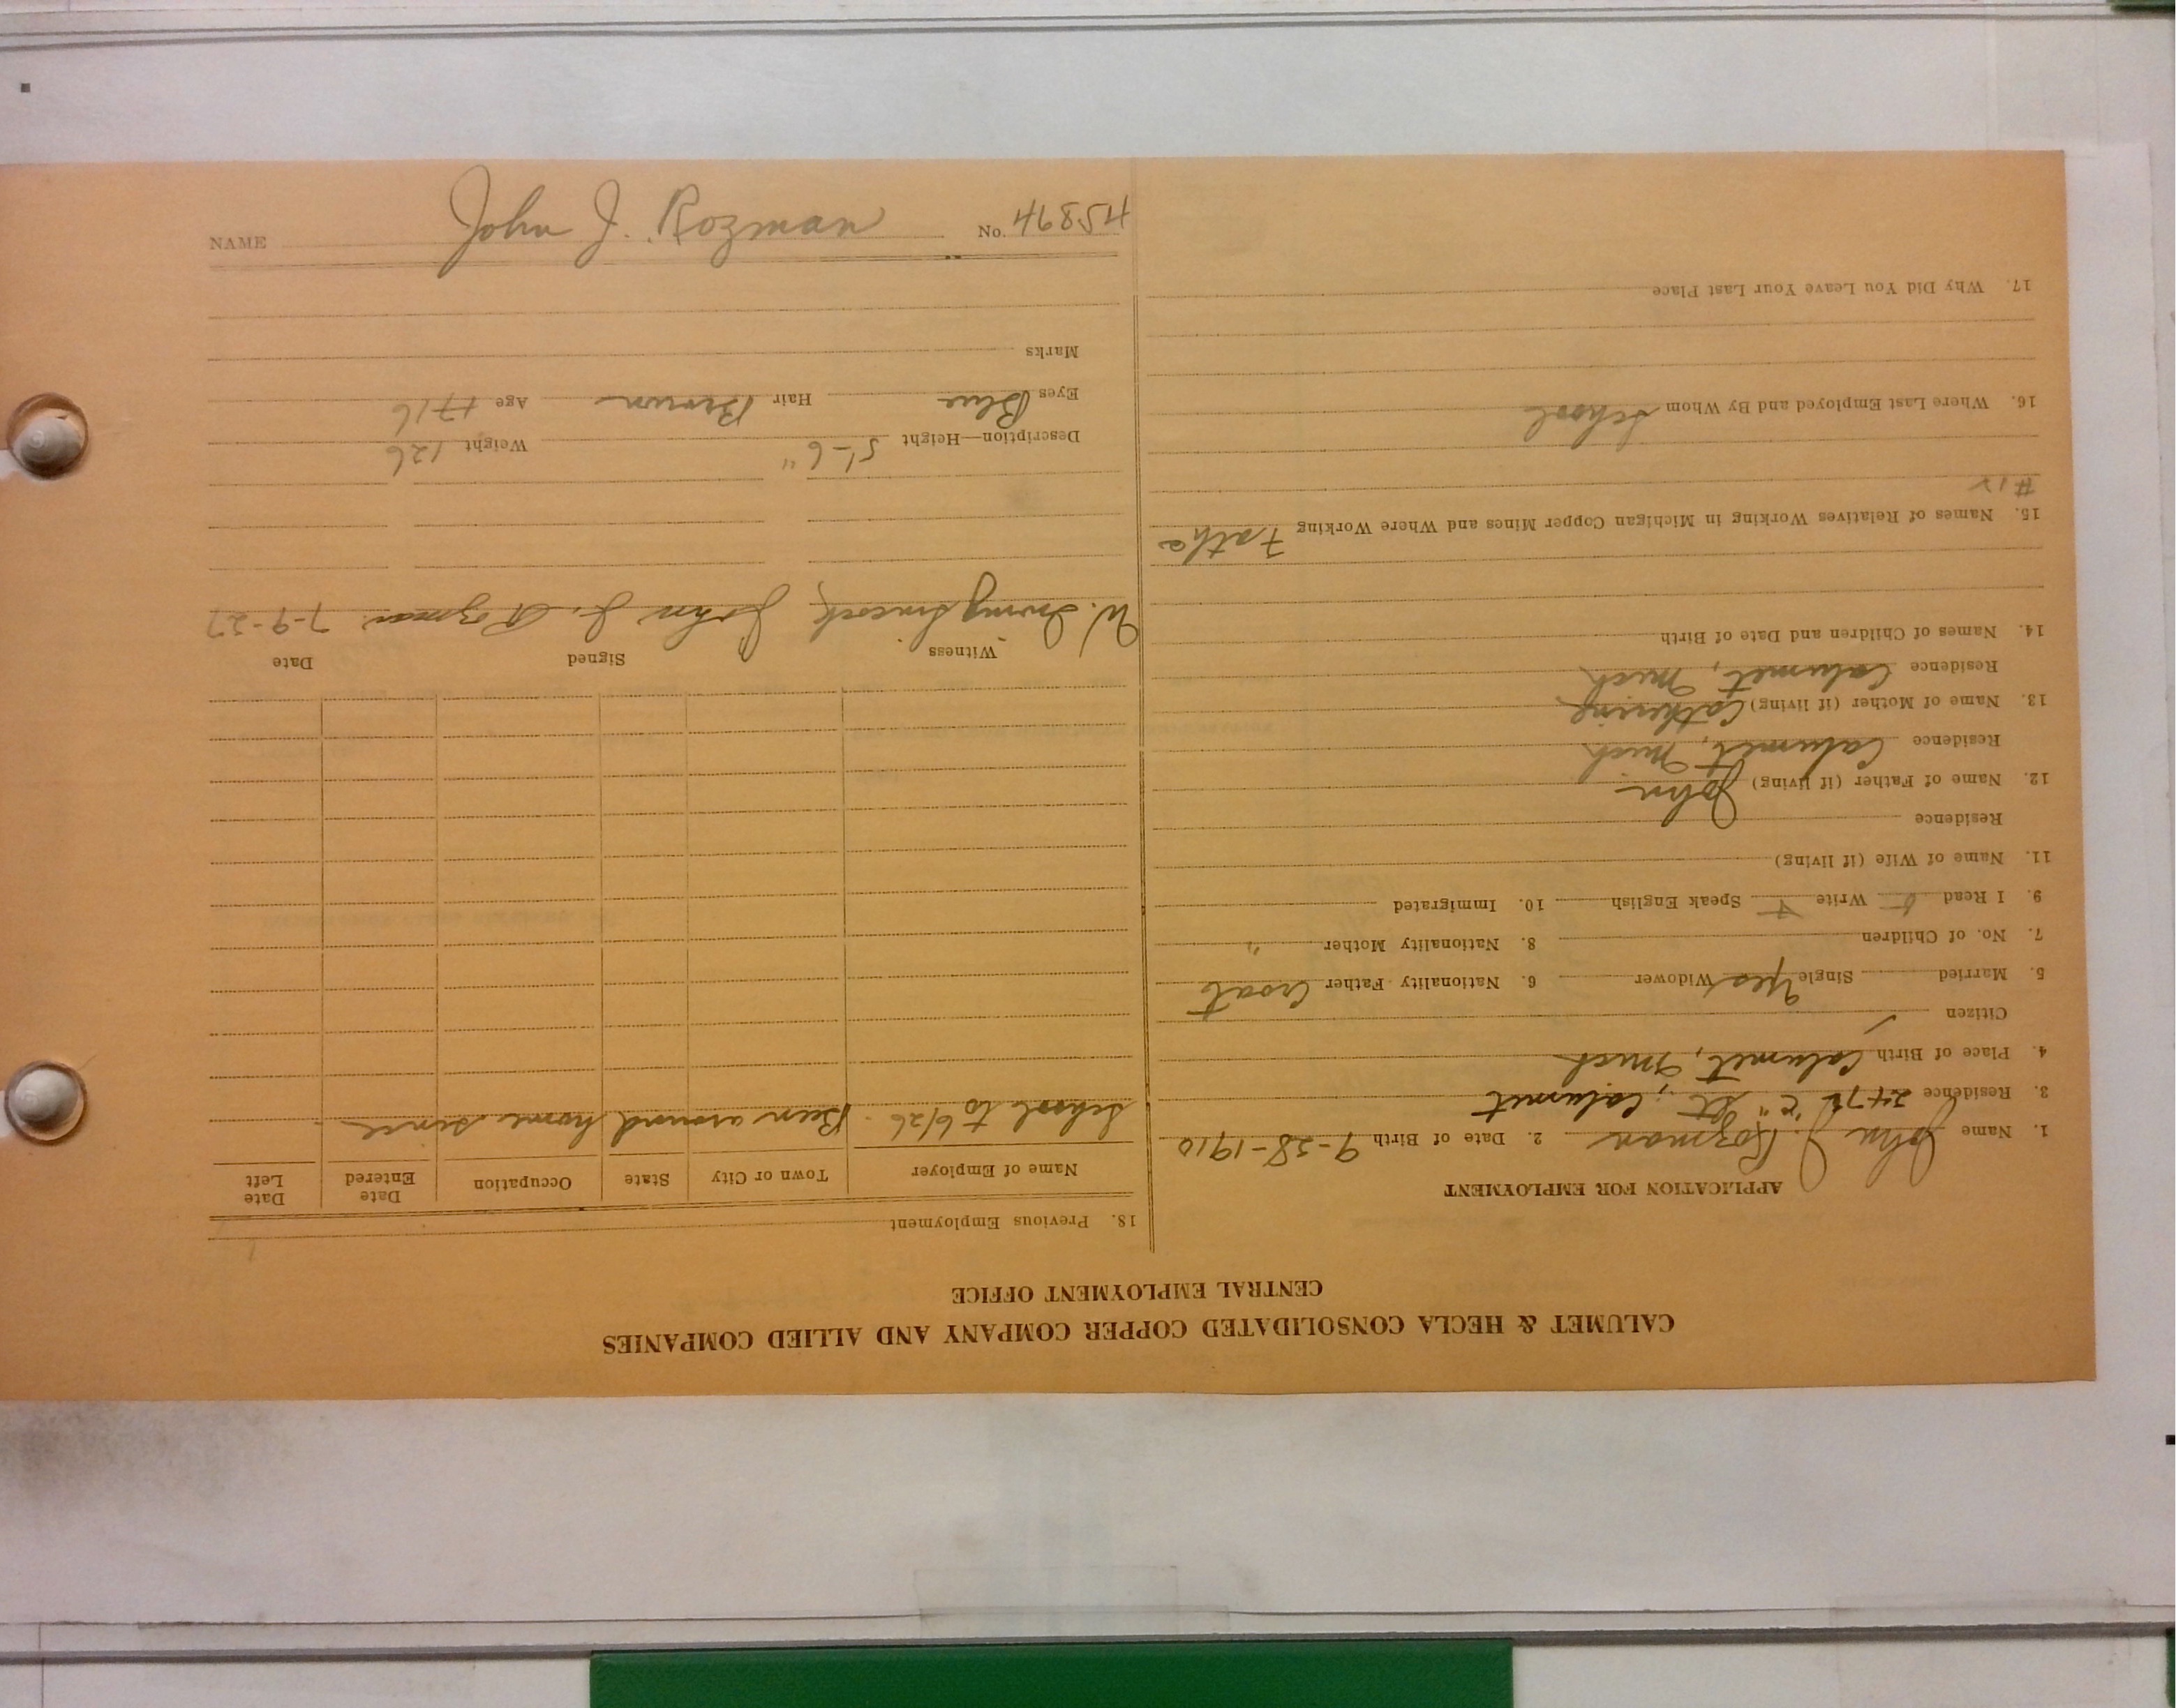 CALUMET & HECLA CONSOLIDATED COPPER COMPANY AND ALLIED COMPANIES
CENTRAL EMPLOYMENT OFFICE
APPLICATION FOR EMPLOYMENT
1. Name John J. Rozman 2. Date of Birth 9-28-1910
3. Residence 2472 "C" St., Calumet
4. Place of Birth Calumet, Mich
Citizen ✓
5. Married Single Yes Widower 6. Nationality Father Croat
7. No. of Children 8. Nationality Mother "
9. I Read Write Speak English 10. Immigrated
11. Name of Wife (if living)
Residence
12. Name of Father (if living) John
Residence Calumet, Mich
13. Name of Mother (if living) Catherine
Residence Calumet, Mich
14. Names of Children and Date of Birth
15. Names of Relatives Working in Michigan Copper Mines and Where Working Father
16. Where Last Employed and By Whom School
17. Why Did You Leave Your Last Place
18. Previous Employment
Name of Employer Town or City State Occupation Date Entered Date Left
School to 6/26. Been around home since
Witness Signed Date
W. Irving John J. Rozman 7-9-27
Description—Height 5'-6" Weight 126
Eyes Blue Hair Brown Age 17 16
Marks
NAME John J. Rozman No. 46854